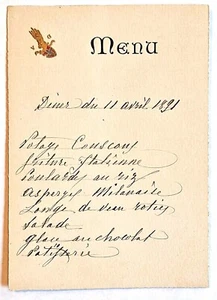 MENU
Dîner du 11 avril 1891
Potage Couscous
friture Italienne
Poularde au riz
asperges Milanaise
Longe de veau rotie
Salade
glace au chocolat
Patisserie